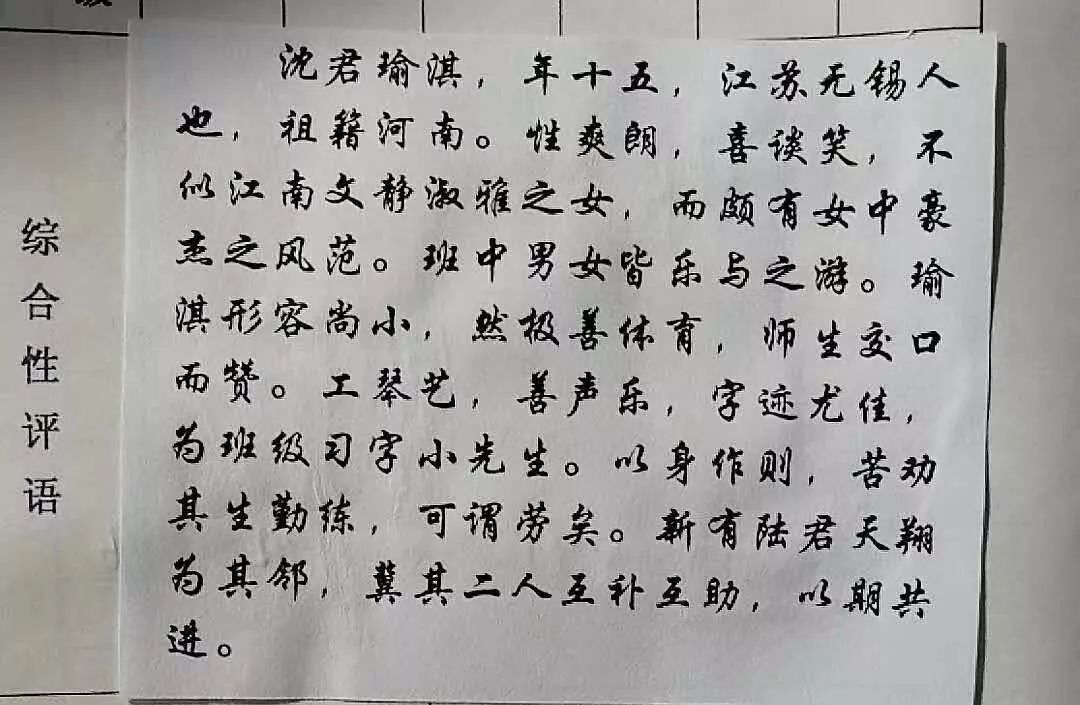 沈君瑜淇，年十五，江苏无锡人
也，祖籍河南。性爽朗，喜谈笑，不
似江南文静淑雅之女，而颇有女中豪
杰之风范。班中男女皆乐与之游。瑜
淇形容尚小，然极善体育，师生交口
而赞。工琴艺，善声乐，字迹尤佳，
为班级习字小先生。以身作则，苦劝
其生勤练，可谓劳矣。新有陆君天翔
为其邻，冀其二人互补互助，以期共
进。
综合性评语